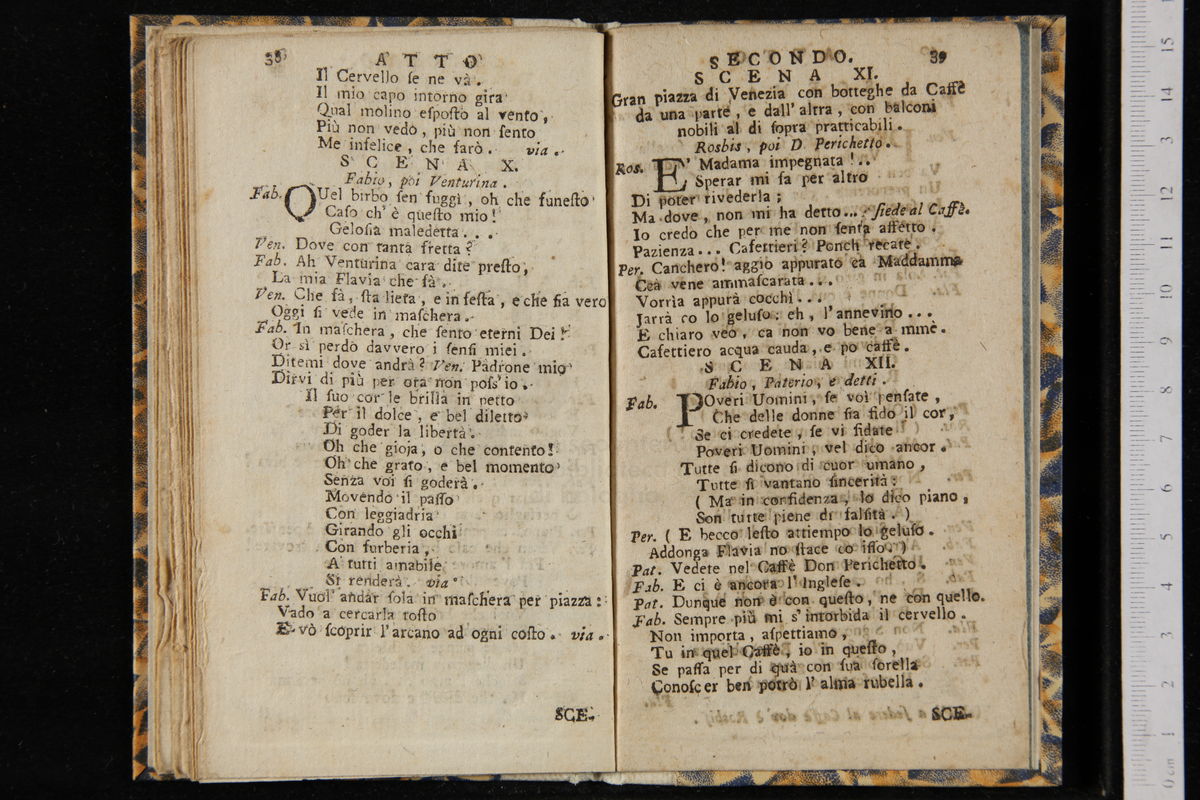 38 ATTO
Il Cervello ſe ne và.
Il mio capo intorno gira
Qual molino eſpoſto al vento,
Più non vedo, più non ſento
Me infelice, che farò. via.
SCENA X.
Fabio, poi Venturina.
Fab. QUel birbo ſen fuggì, oh che funeſto
Caſo ch' è queſto mio!
Geloſia maledetta...
Ven. Dove con tanta fretta?
Fab. Ah Venturina cara dite preſto,
La mia Flavia che fà.
Ven. Che fà, ſta lieta, e in feſta, e che ſia vero
Oggi ſi vede in maſchera.
Fab. In maſchera, che ſento eterni Dei!
Or sì perdo davvero i ſenſi miei.
Ditemi dove andrà? Ven. Padrone mio
Dirvi di più per ora non poſs'io.
Il ſuo cor le brilla in petto
Per il dolce, e bel diletto
Di goder la libertà.
Oh che gioja, o che contento!
Oh che grato, e bel momento
Senza voi ſi goderà.
Movendo il paſſo
Con leggiadria
Girando gli occhi
Con furberia,
A tutti amabile
Si renderà. via.
Fab. Vuol' andar ſola in maſchera per piazza:
Vado a cercarla toſto
E vò ſcoprir l'arcano ad ogni coſto. via.
SCE-
SECONDO. 39
SCENA XI.
Gran piazza di Venezia con botteghe da Caffè
da una parte, e dall' altra, con balconi
nobili al di ſopra pratticabili.
Rosbis, poi D. Perichetto.
Ros. E' Madama impegnata!..
Sperar mi fa per altro
Di poter rivederla;
Ma dove, non mi ha detto... ſiede al Caffè.
Io credo che per me non ſenta affetto.
Pazienza... Cafettieri? Ponch recate.
Per. Canchero! aggio appurato ca Maddamma
Cea vene ammaſcarata...
Vorrìa appurà cocchì...
Jarrà co lo geluſo: eh, l'annevino...
E chiaro veo, ca non vo bene a mmè.
Cafettiero acqua cauda, e po caffè.
SCENA XII.
Fabio, Paterio, e detti.
Fab. POveri Uomini, ſe voi penſate,
Che delle donne ſia fido il cor,
Se ci credete, ſe vi fidate
Poveri Uomini, vel dico ancor.
Tutte ſi dicono di cuor umano,
Tutte ſi vantano ſincerità:
(Ma in confidenza, lo dico piano,
Son tutte piene di falſità.)
Per. (E becco leſto attiempo lo geluſo.
Addonga Flavia no ſtace co iſſo.)
Pat. Vedete nel Caffè Don Perichetto.
Fab. E ci è ancora l'Ingleſe.
Pat. Dunque non è con queſto, ne con quello.
Fab. Sempre più mi s'intorbida il cervello.
Non importa, aſpettiamo,
Tu in quel Caffè, io in queſto,
Se paſſa per di quà con ſua ſorella
Conoſcer ben potrò l' alma rubella.
SCE-